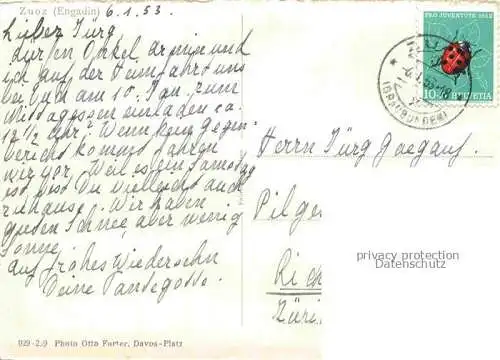 Zuoz (Engadin)
6.1.53.
Lieber Jürg,
dürfen Onkel Armin und
ich auf der Heimfahrt uns
bei Euch am 10. Jan. zum
Mittagessen einladen ca.
12 1/2 Uhr? Wenn kein Gegen-
bericht kommt fahren
wir vor. Weil es ein Samstag
ist, bist Du vielleicht auch
zuhause. Wir haben
guten Schnee, aber wenig
Sonne.
Auf frohes Wiedersehn
Deine
029-2.9 Photo Otto Furter, Davos-Platz
PRO JUVENTUTE 1952
10 HELVETIA
(GRAUBÜNDEN)
Herrn Jürg
Pilge
Rich
Züri
privacy protection
Datenschutz